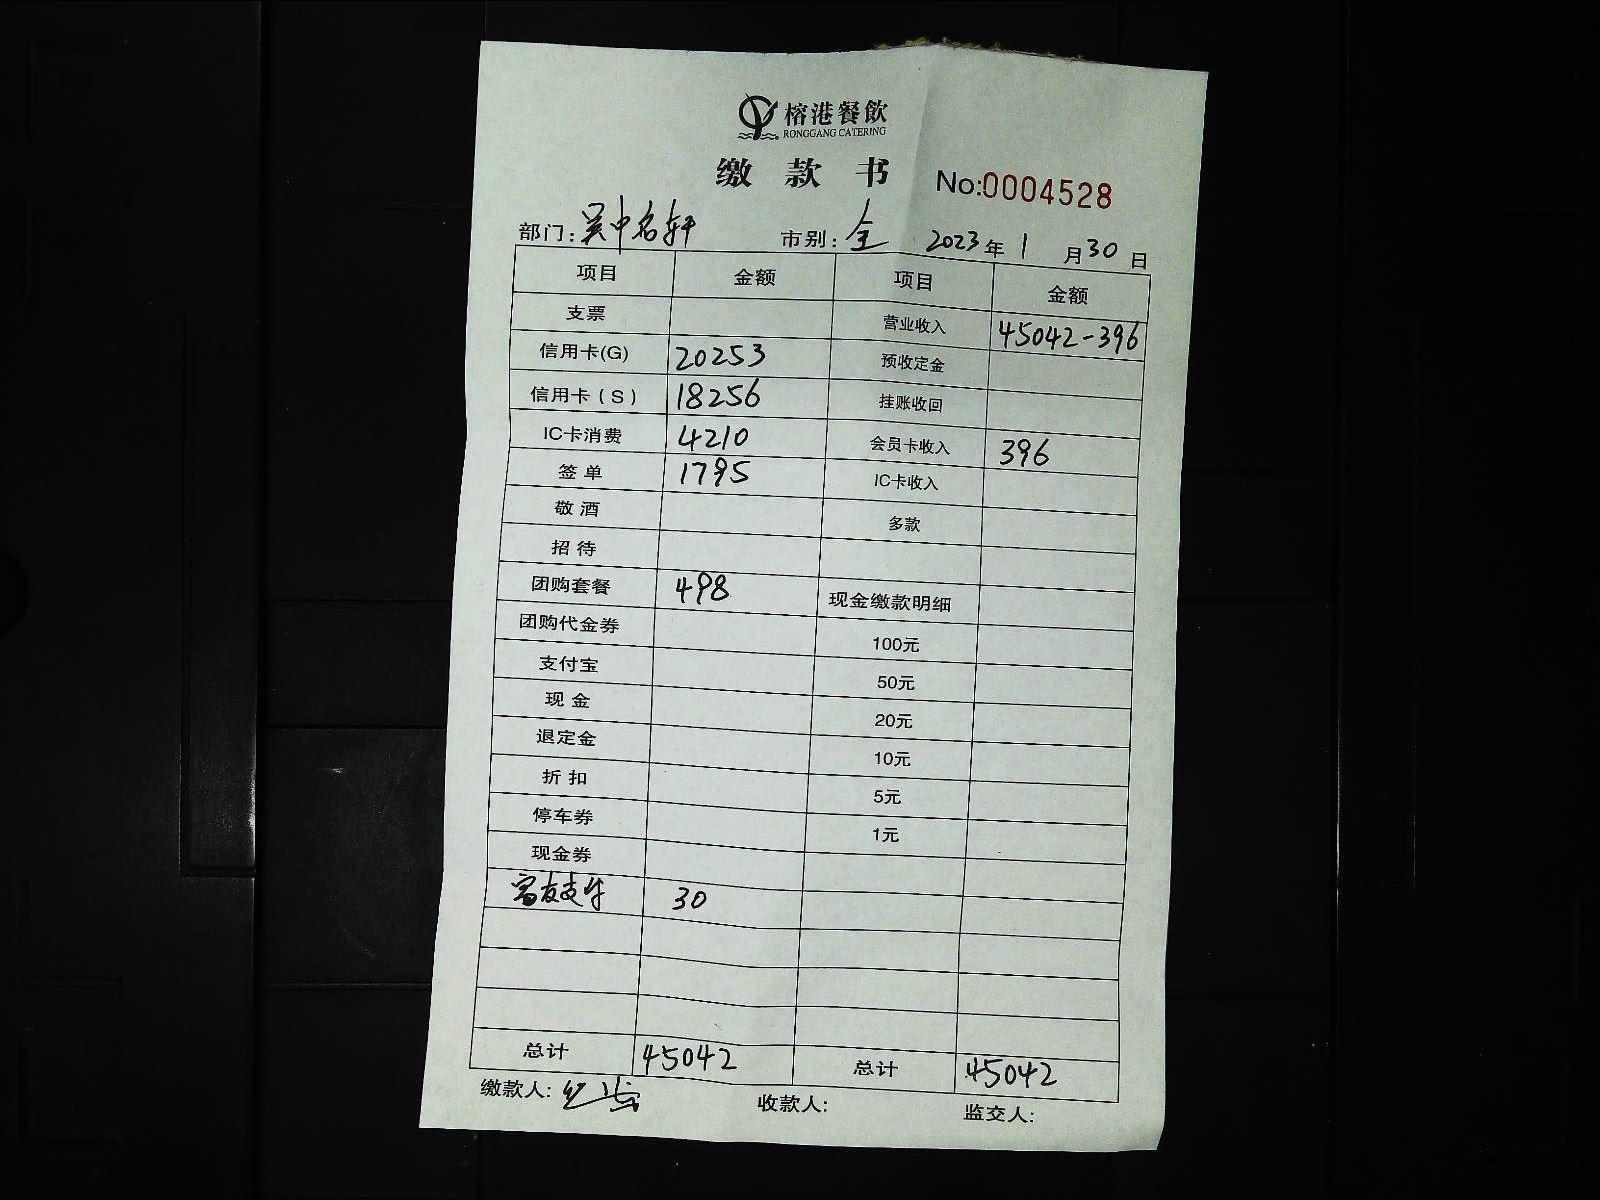 榕港餐飲
RONGGANG CATERING
缴款书
No:0004528
部门: 吴中名轩 市别: 全 2023年1月30日
项目 金额 项目 金额
支票 营业收入 45042-396
信用卡(G) 20253 预收定金
信用卡(S) 18256 挂账收回
IC卡消费 4210 会员卡收入 396
签单 1795 IC卡收入
敬酒 多款
招待
团购套餐 498 现金缴款明细
团购代金券 100元
支付宝 50元
现金 20元
退定金 10元
折扣 5元
停车券 1元
现金券
富友支付 30
总计 45042 总计 45042
缴款人: 收款人: 监交人: